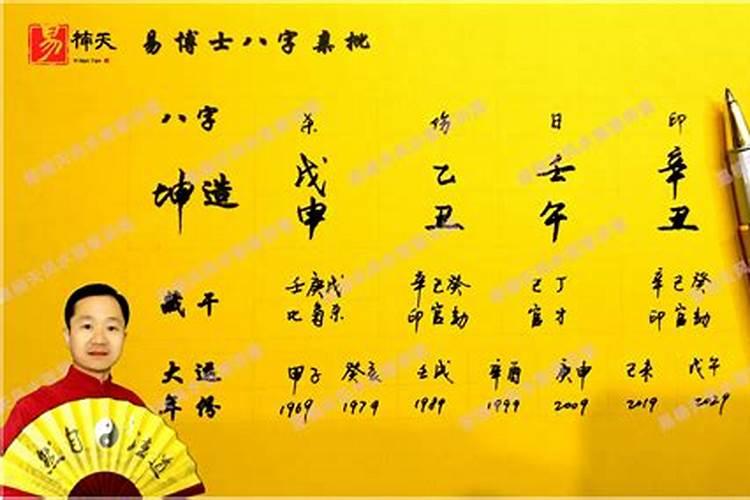 易 楠天 易博士八字亲批
八字 杀 伤 日 印
坤造 戊 乙 壬 辛
申 丑 午 丑
藏干 壬庚戊 辛己癸 己丁 辛己癸
比枭杀 印官劫 官才 印官劫
大运 甲子 癸亥 壬戌 辛酉 庚申 己未 戊午
年份 1969 1979 1989 1999 2009 2019 2029
然自法道